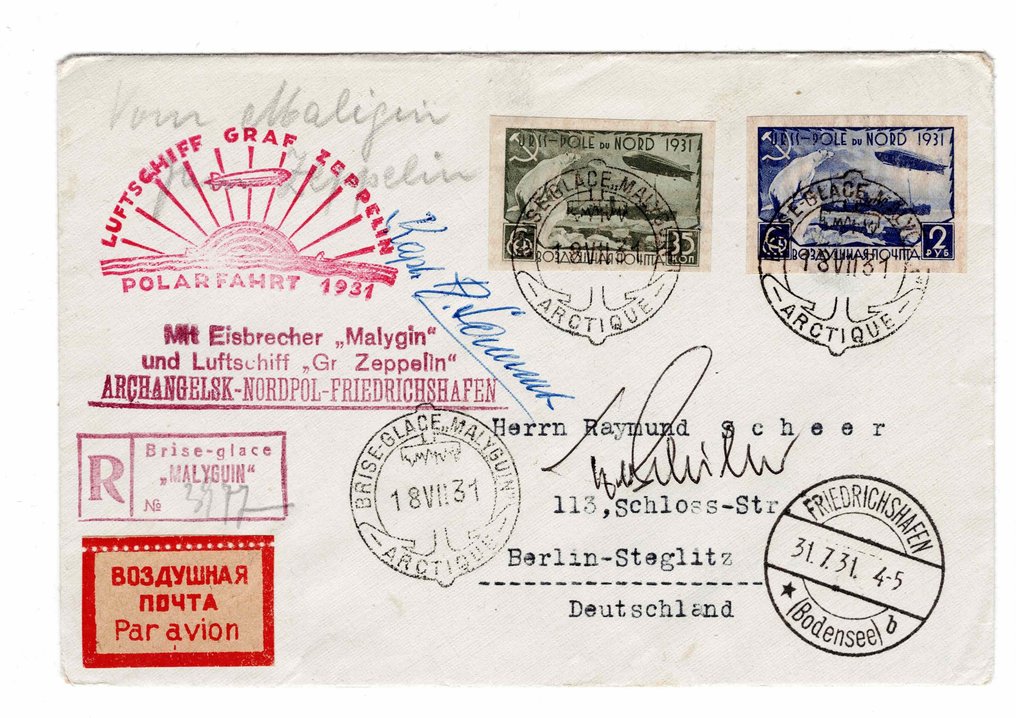 Vom Maligin
Zeppelin
LUFTSCHIFF GRAF ZEPPELIN
POLARFAHRT 1931
Mit Eisbrecher „Malygin“
und Luftschiff „Gr Zeppelin“
ARCHANGELSK-NORDPOL-FRIEDRICHSHAFEN
R
Brise-glace
„MALYGUIN“
№
ВОЗДУШНАЯ
ПОЧТА
Par avion
URSS-POLE DU NORD 1931
35 КОП
ВОЗДУШНАЯ ПОЧТА
URSS-POLE DU NORD 1931
2 РУБ
ВОЗДУШНАЯ ПОЧТА
18 VII 31
ARCTIQUE
18 VII 31
ARCTIQUE
BRISE-GLACE „MALYGUIN“
18 VII 31
ARCTIQUE
Herrn Raymund Scheer
113, Schloss-Str
Berlin-Steglitz
Deutschland
FRIEDRICHSHAFEN
31.7.31. 4-5
(Bodensee) b